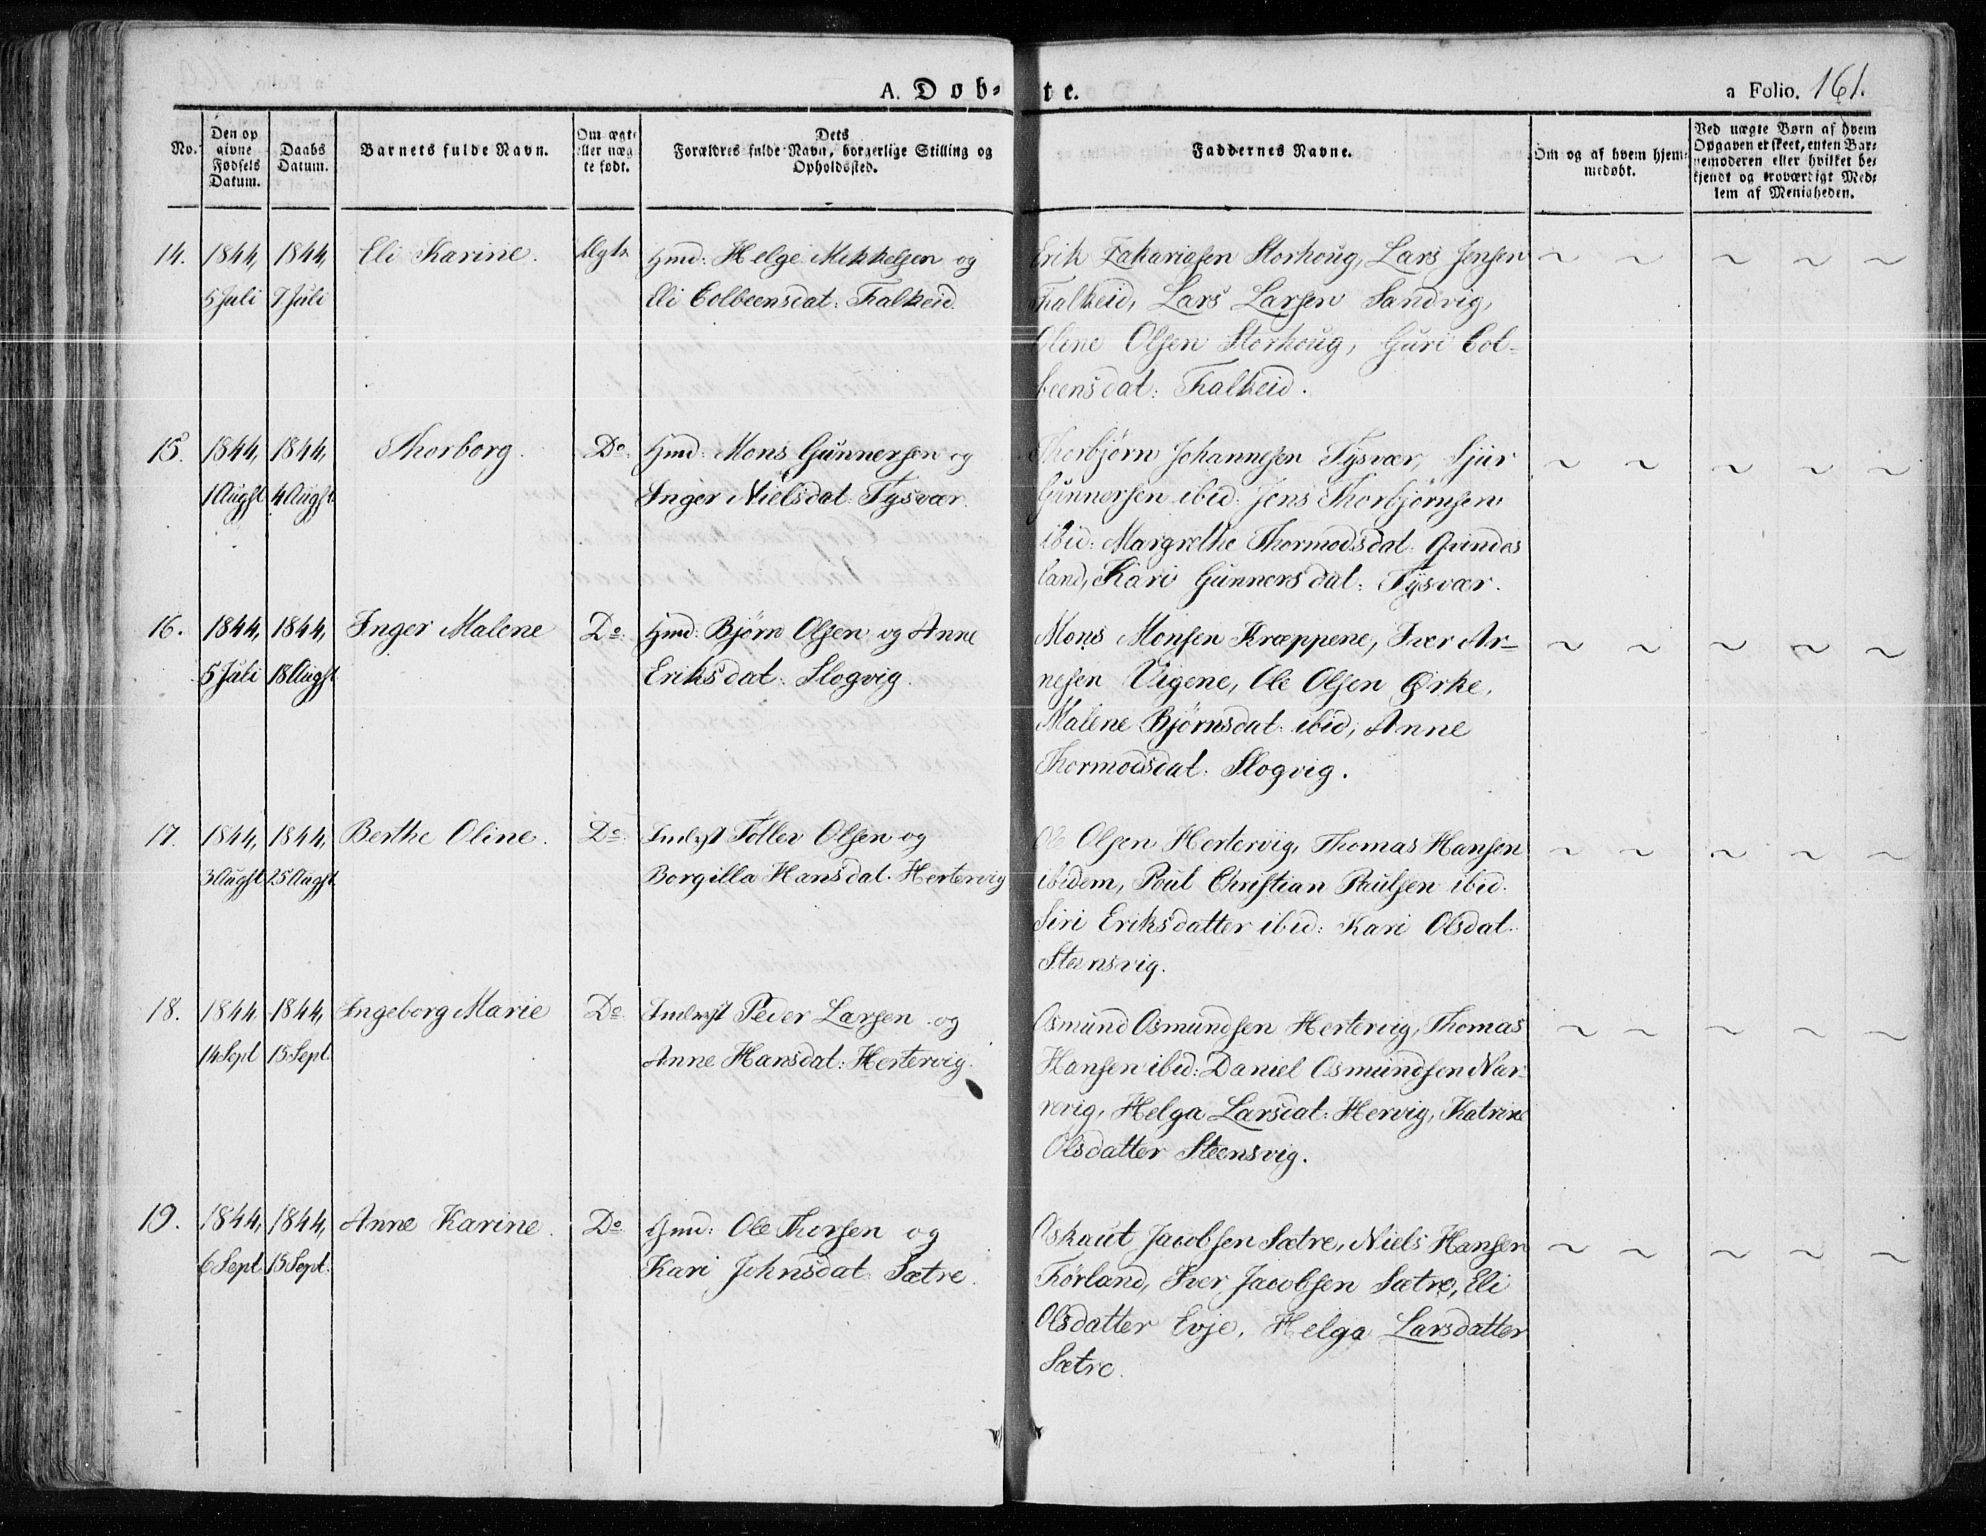 A. Døb-te.
a Folio. 161.
No.
Den op
givne
Fødsels
Datum.
Daabs
Datum.
Barnets fulde Navn.
Om ægte
eller næg
te født.
Dets
Forældres fulde Navn, borgerlige Stilling og
Opholdssted.
Faddernes Navne.
Om og af hvem hjem-
medøbt.
Ved uægte Børn af hvem
Opgaven er skeet, enten Bar-
nemoderen eller hvilket be-
kjendt og troværdigt Med-
lem af Menigheden.
14. 1844, 1844, Eli Karine. Ægte Gmd: Helge Mikkelsen og
5 Juli 7 Juli Eli Colbeensdat: Falkeid.
Erik Zakariasen Storhoug, Lars Jensen ~ ~ ~ ~ ~
Falkeid, Lars Larsen Sandvig,
Oline Olsen Storhoug, Guri Col-
beensdat: Falkeid.
15. 1844, 1844, Thorborg. Do. Gmd: Mons Gunnersen og
1 Augst 4 Augst Inger Nielsdat: Tysvær.
Thorbjørn Johannesen Tysvær, Sjur ~ ~ ~ ~ ~
Gunnersen ibid: Jens Thorbjørnsen
ibid: Margrethe Thormodsdat: Grindes
land, Kari Gunnersdat: Tysvær.
16. 1844, 1844, Inger Malene Do. Gmd: Bjørn Olsen og Anne
5 Juli 18 Augst Eriksdat: Slogvig.
Mons Monsen Kræppene, Iver Ar- ~ ~ ~ ~ ~
nesen Vigene, Ole Olsen Ørke,
Malene Bjørnsdat: ibid, Anne
Thormodsdat: Slogvig.
17. 1844, 1844, Berthe Oline. Do. Inderst Tollev Olsen og
3 Augst 25 Augst Borgilla Hansdat: Hertervig
Ole Olsen Hertervig, Thomas Hansen ~ ~ ~ ~ ~
ibidem, Poul Christian Paulsen ibid:
Siri Eriksdatter ibid: Kari Olsdat.
Stensvig.
18. 1844 1844, Ingeborg Marie Do. Inderst Peder Larsen og
14 Sept 15 Sept Anne Hansdat: Hertervig.
Osmund Osmundsen Hertervig, Thomas ~ ~ ~ ~ ~
Hansen ibid: Daniel Osmundsen Nar-
vevig, Helga Larsdat: Hervig, Katrine
Olsdatter Steensvig.
19. 1844, 1844, Anne Karine. Do. Gmd: Ole Thorsen og
6 Sept 15 Sept. Kari Johnsdat: Sætre.
Oskaut Jacobsen Sætre, Niels Hansen ~ ~ ~ ~ ~
Førland, Iver Jacobsen Sætre, Eli
Olsdatter Evje, Helga Larsdatter
Sætre.